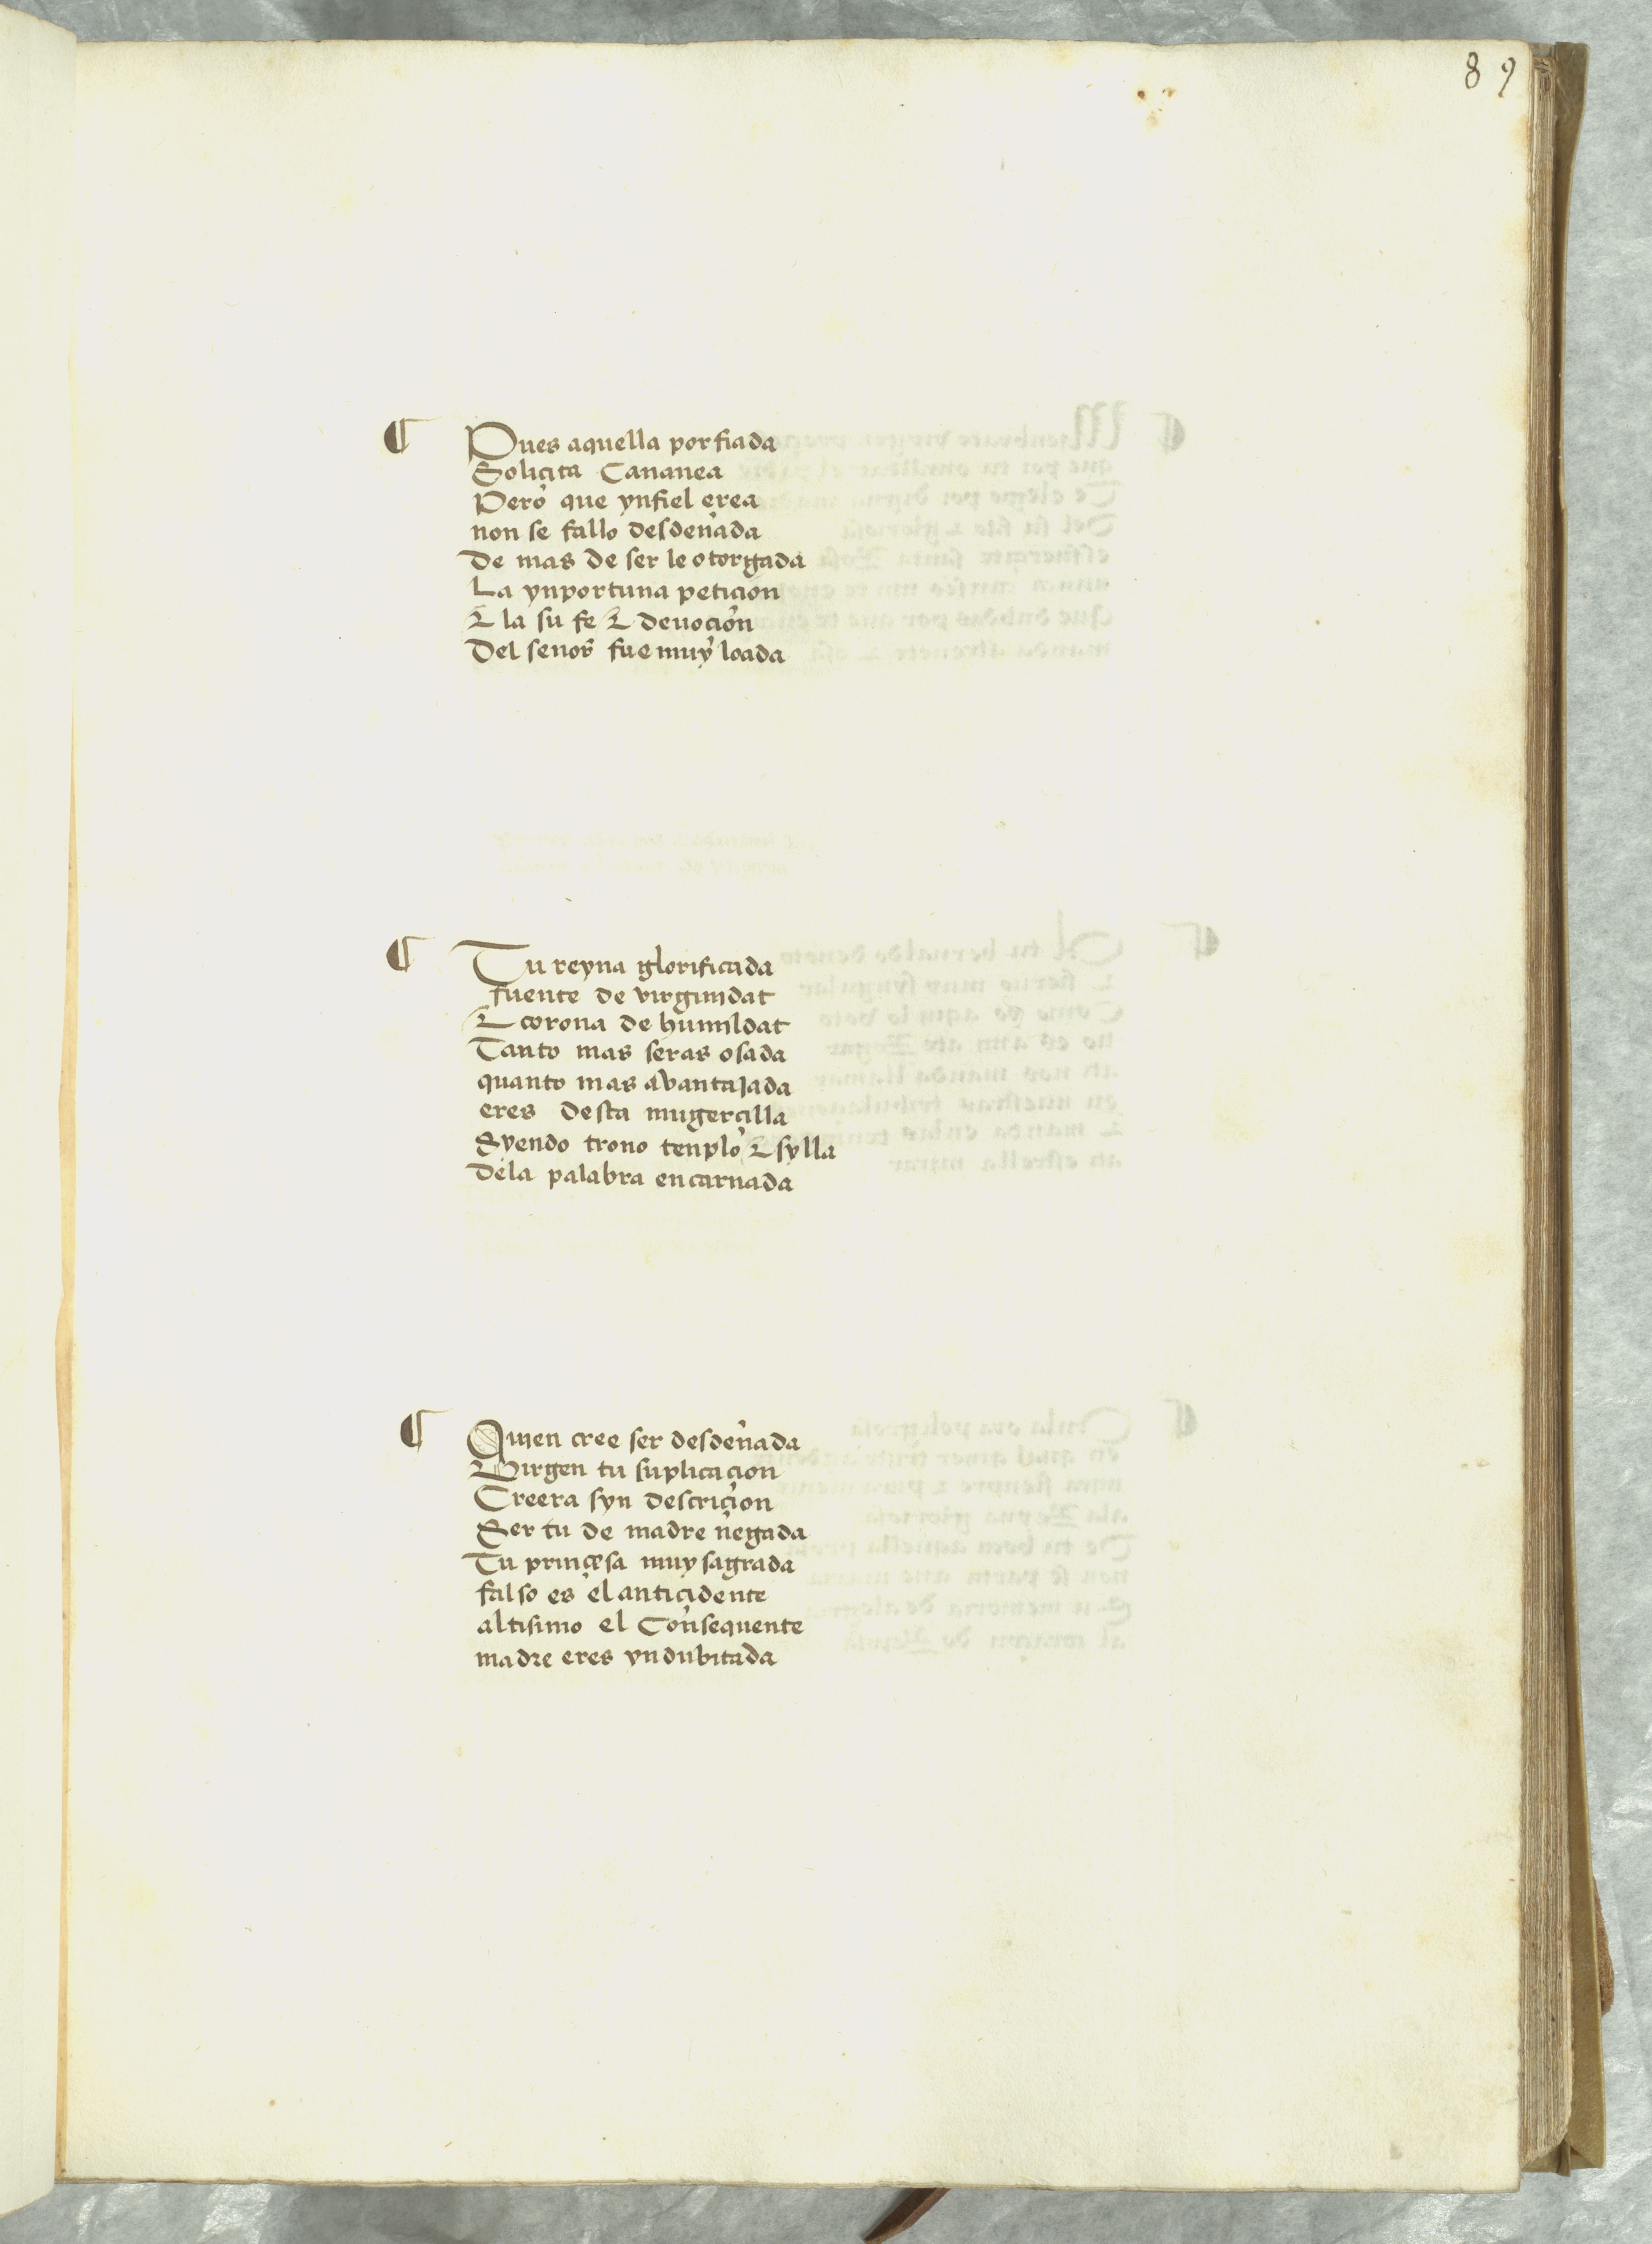 89
¶ Pues aquella porfiada
Soliçita Cananea
Pero que ynfiel erea
non se fallo desdeñada
De mas de ser le otorgada
La ynportuna petiçion
E la su fe E deuoçion
Del señor fue muy loada
¶ Tu reyna glorificada
fuente de virginidat
E corona de humildat
Tanto mas seras osada
quanto mas avantajada
eres desta mugerçilla
Syendo trono tenplo E sylla
Dela palabra encarnada
¶ Quien cree ser desdeñada
Virgen tu suplicaçion
Creera syn descriçion
Ser tu de madre negada
Tu prinçesa muy sagrada
falso es el antiçidente
altisimo el Consequente
madre eres yndubitada